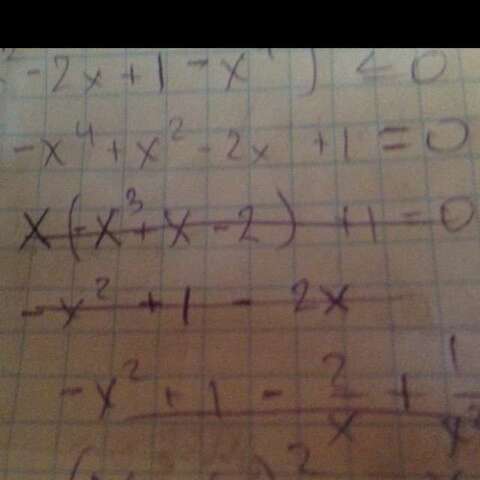 ² - 2x + 1 - x⁴) < 0
-x⁴ + x² - 2x + 1 = 0
x(-x³ + x - 2) + 1 = 0
-x² + 1 - 2x
-x² + 1 - 2/x + 1/x²
)²